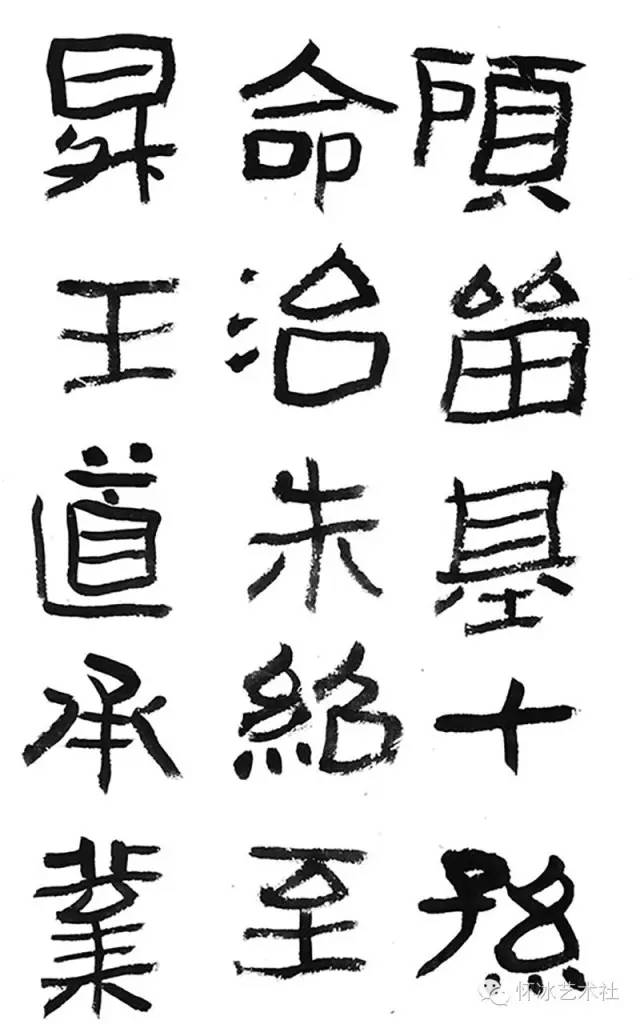 顧畱基十孫
命治朱紹至
昇王道承業
怀冰艺术社